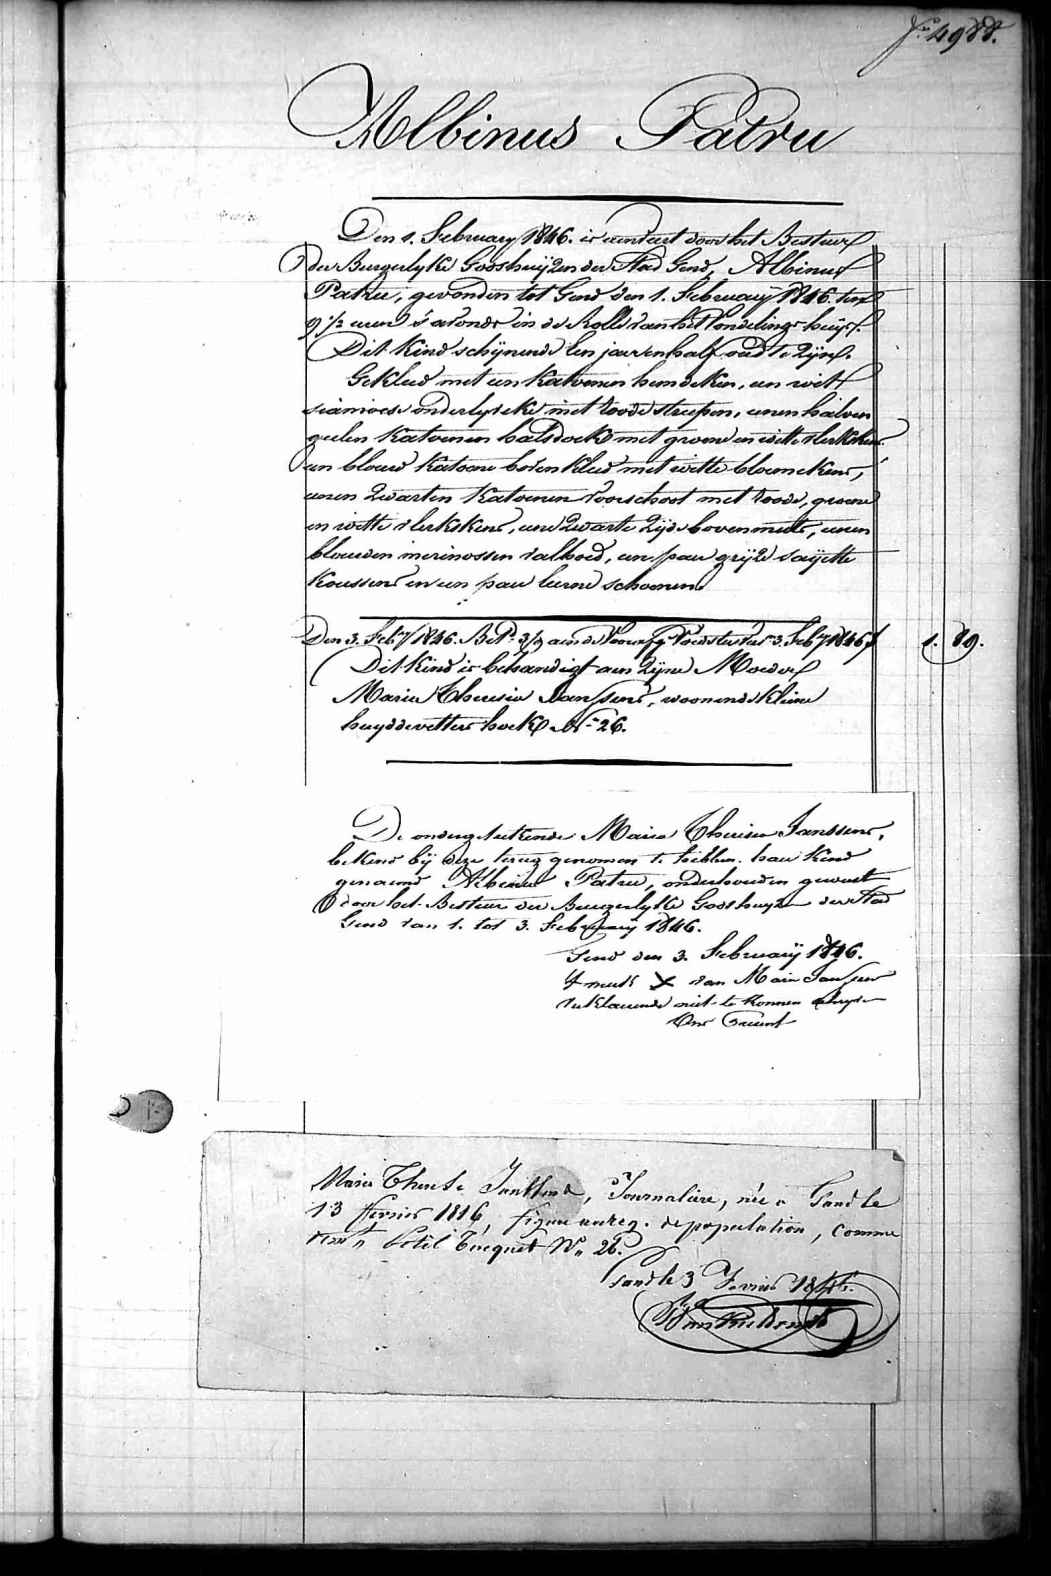 Fo. 4988.
Albinus Patru
Den 1. February 1846. is aenveert door het Bestuur
der Burgerlyke Godshuijzen der Stad Gend, Albinus
Patru, gevonden tot Gend den 1. February 1846. ten
9 1/2 uren 's avonds in de Rolle van het Vondelings huijs.
Dit Kind schijnende een jaar en half oud te zijn.
Gekleed met een Katoenen hemdeken, een wit
siamoese onderlyfeke met roode streepen, eenen halven
geelen Katoenen halsdoek met groene en witte vlerkskens
een blauw Katoene boven kleed met witte bloemekens,
eenen zwarten Katoenen voorschoot met roode, groene
en witte vlerkskens, eene zwarte zijde bovenmuts, eenen
blauwen merinossen valhoed, een paer grijze saijette
Koussens en een paer leerne schoenen.
Den 3. Feby 1846. Betd aen de Voedster tot 3. Feby 1846 f
1. 89.
Dit Kind is behandigt aen zijne Moeder
Maria Theresia Janssens, woonende kleine
huydevettershoek No 26.
De ondergeteekende Maria Theresia Janssens,
bekend bij deze terug genomen te hebben haer Kind
genaemd Albinus Patru, onderhouden geweest
door het Bestuur der Burgerlyke Godshuyzen der Stad
Gend van 1. tot 3. February 1846.
Gend den 3. February 1846.
't merk X van Maria Janssens
verklaerende niet te konnen schryven
Ons Present
Marie Therese Janssens, Journalière, née à Gand le
13 fevrier 1816, figure au reg. de population, comme
demt petit Tucquet No 26.
Gand le 3 Fevrier 1846.